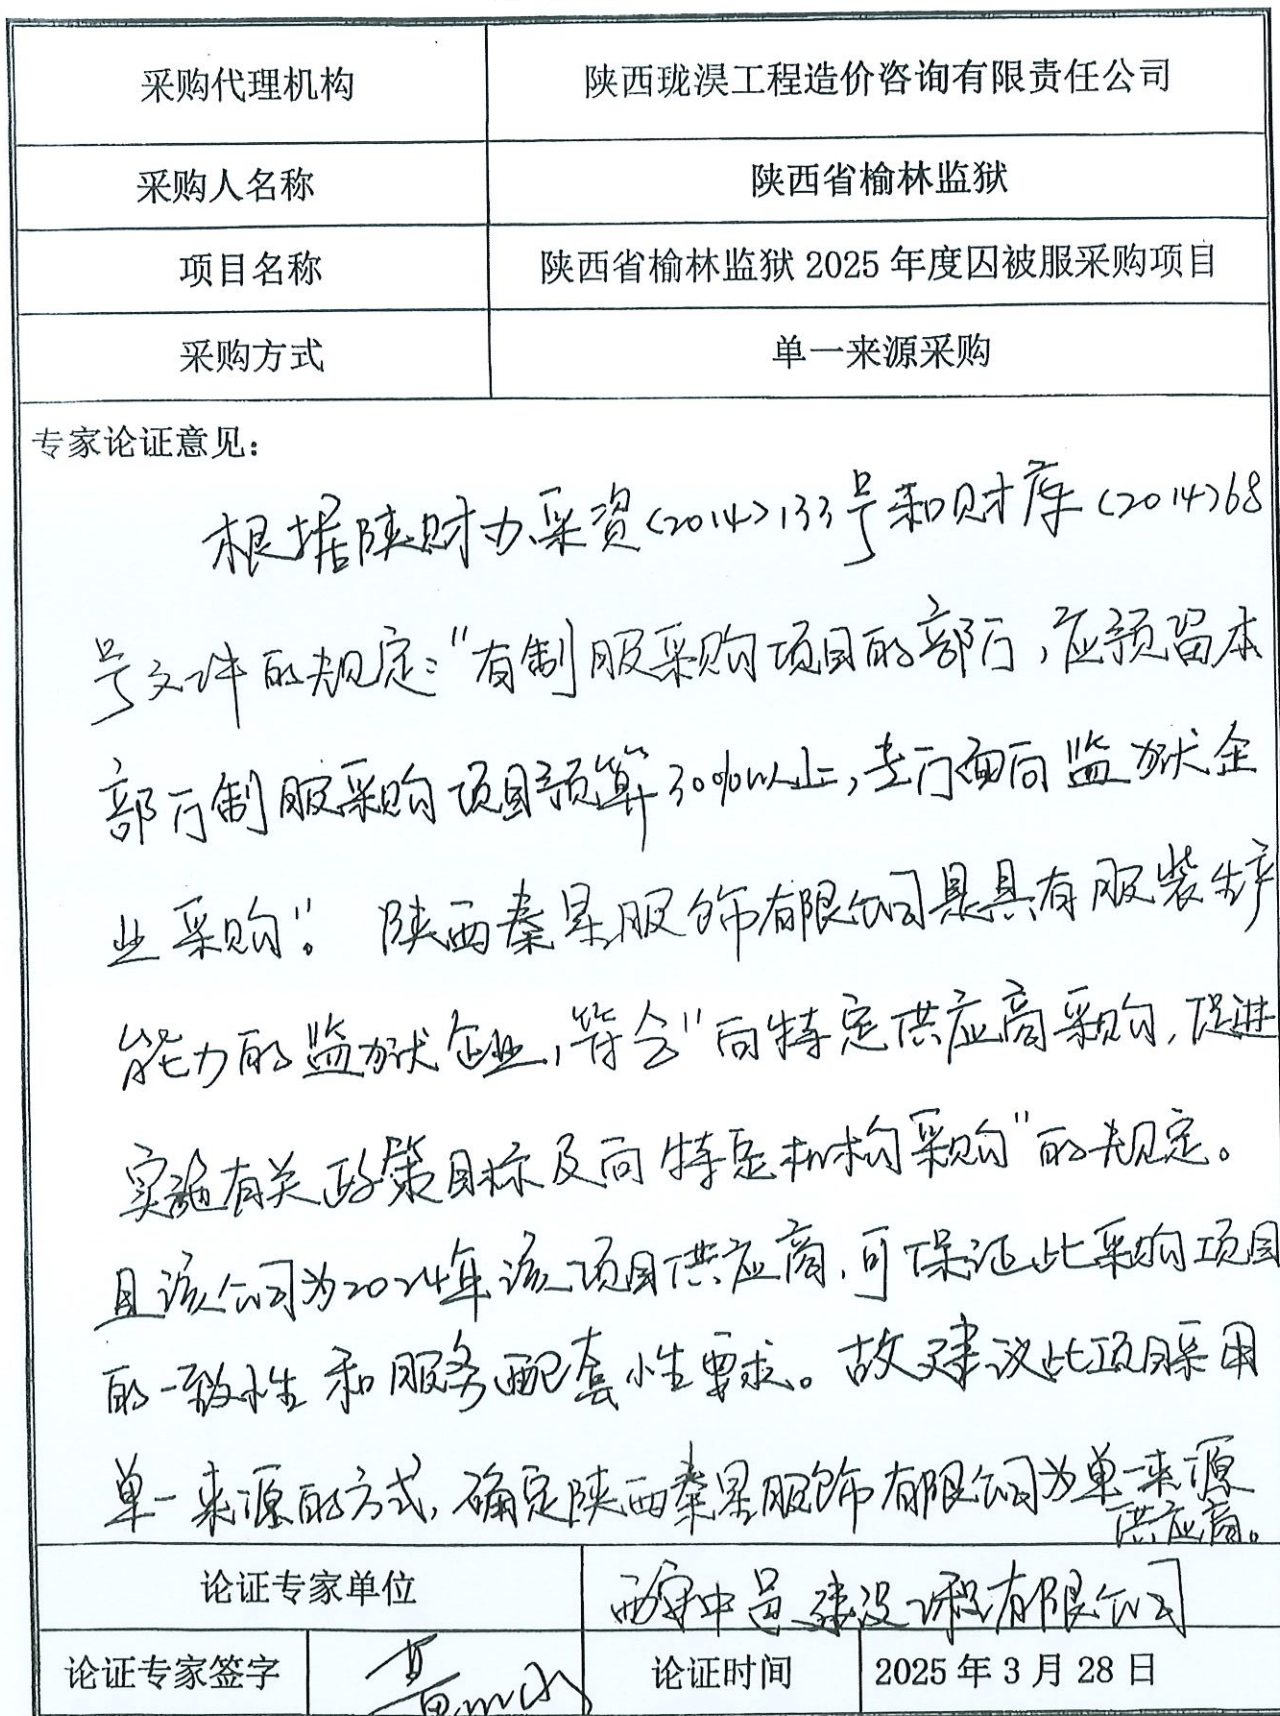 采购代理机构 陕西珑淏工程造价咨询有限责任公司
采购人名称 陕西省榆林监狱
项目名称 陕西省榆林监狱 2025 年度囚被服采购项目
采购方式 单一来源采购
专家论证意见：
根据陕财办采资〈2014〉133号和财库〈2014〉68
号文件的规定："有制服采购项目的部门，应预留本
部门制服采购项目预算30%以上，专门面向监狱企
业采购"。陕西秦星服饰有限公司是具有服装生产
能力的监狱企业，符合"向特定供应商采购，促进
实施有关政策目标及向特定机构采购"的规定。
且该公司为2024年该项目供应商，可保证此采购项目
的一致性和服务配套性要求。故建议此项目采用
单一来源的方式，确定陕西秦星服饰有限公司为单一来源
供应商。
论证专家单位 西安中邑建设工程有限公司
论证专家签字 论证时间 2025 年 3 月 28 日